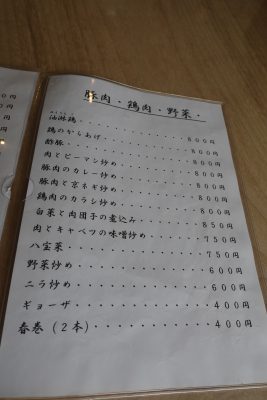 豚肉・鶏肉・野菜・
油淋鶏・・・・・・・・・・・・・800円
鶏のからあげ・・・・・・・・・・800円
酢豚・・・・・・・・・・・・・・800円
肉とピーマン炒め・・・・・・・・800円
豚肉のカレー炒め・・・・・・・・800円
豚肉と京ネギ炒め・・・・・・・・800円
鶏肉のカラシ炒め・・・・・・・・800円
白菜と肉団子の煮込み・・・・・・850円
肉とキャベツの味噌炒め・・・・・750円
八宝菜・・・・・・・・・・・・・750円
野菜炒め・・・・・・・・・・・・600円
ニラ炒め・・・・・・・・・・・・600円
ギョーザ・・・・・・・・・・・・400円
春巻(2本)・・・・・・・・・・・400円